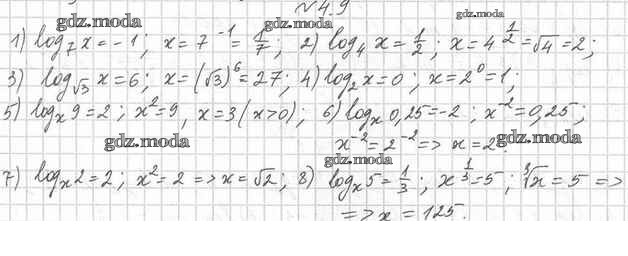 №4.9
gdz.moda gdz.moda gdz.moda
1) log₇ x = -1; x = 7⁻¹ = 1/7; 2) log₄ x = 1/2; x = 4^(1/2) = √4 = 2;
3) log_√3 x = 6; x = (√3)⁶ = 27; 4) log₂ x = 0; x = 2⁰ = 1;
5) logₓ 9 = 2; x² = 9, x = 3 (x > 0); 6) logₓ 0,25 = -2; x⁻² = 0,25;
gdz.moda x⁻² = 2⁻² => x = 2. gdz.moda
gdz.moda
7) logₓ 2 = 2; x² = 2 => x = √2; 8) logₓ 5 = 1/3; x^(1/3) = 5; ∛x = 5 =>
=> x = 125.